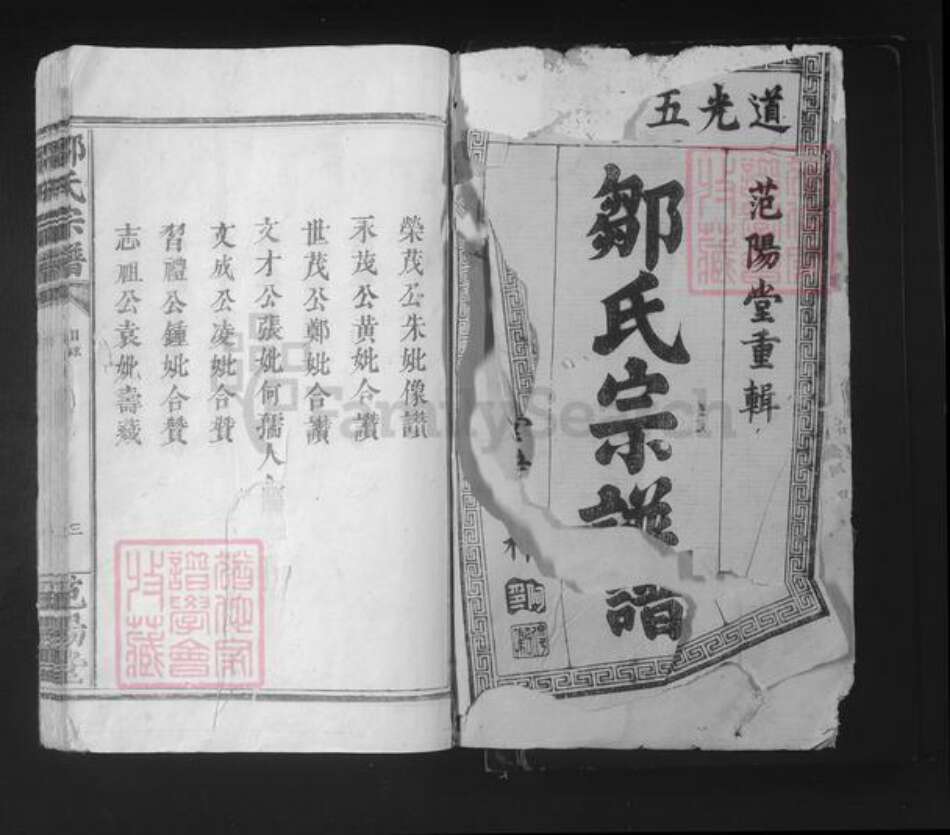 道光五
范陽堂重輯
鄒氏宗譜
榮茂公朱妣像讃
永茂公黃妣合讃
世茂公鄭妣合讃
文才公張妣何孺人
文成公凌妣合贊
習禮公鍾妣合贊
志祖公袁妣壽藏
鄒氏宗譜
目錄
三
范陽堂
譜學會
收藏
FamilySearch